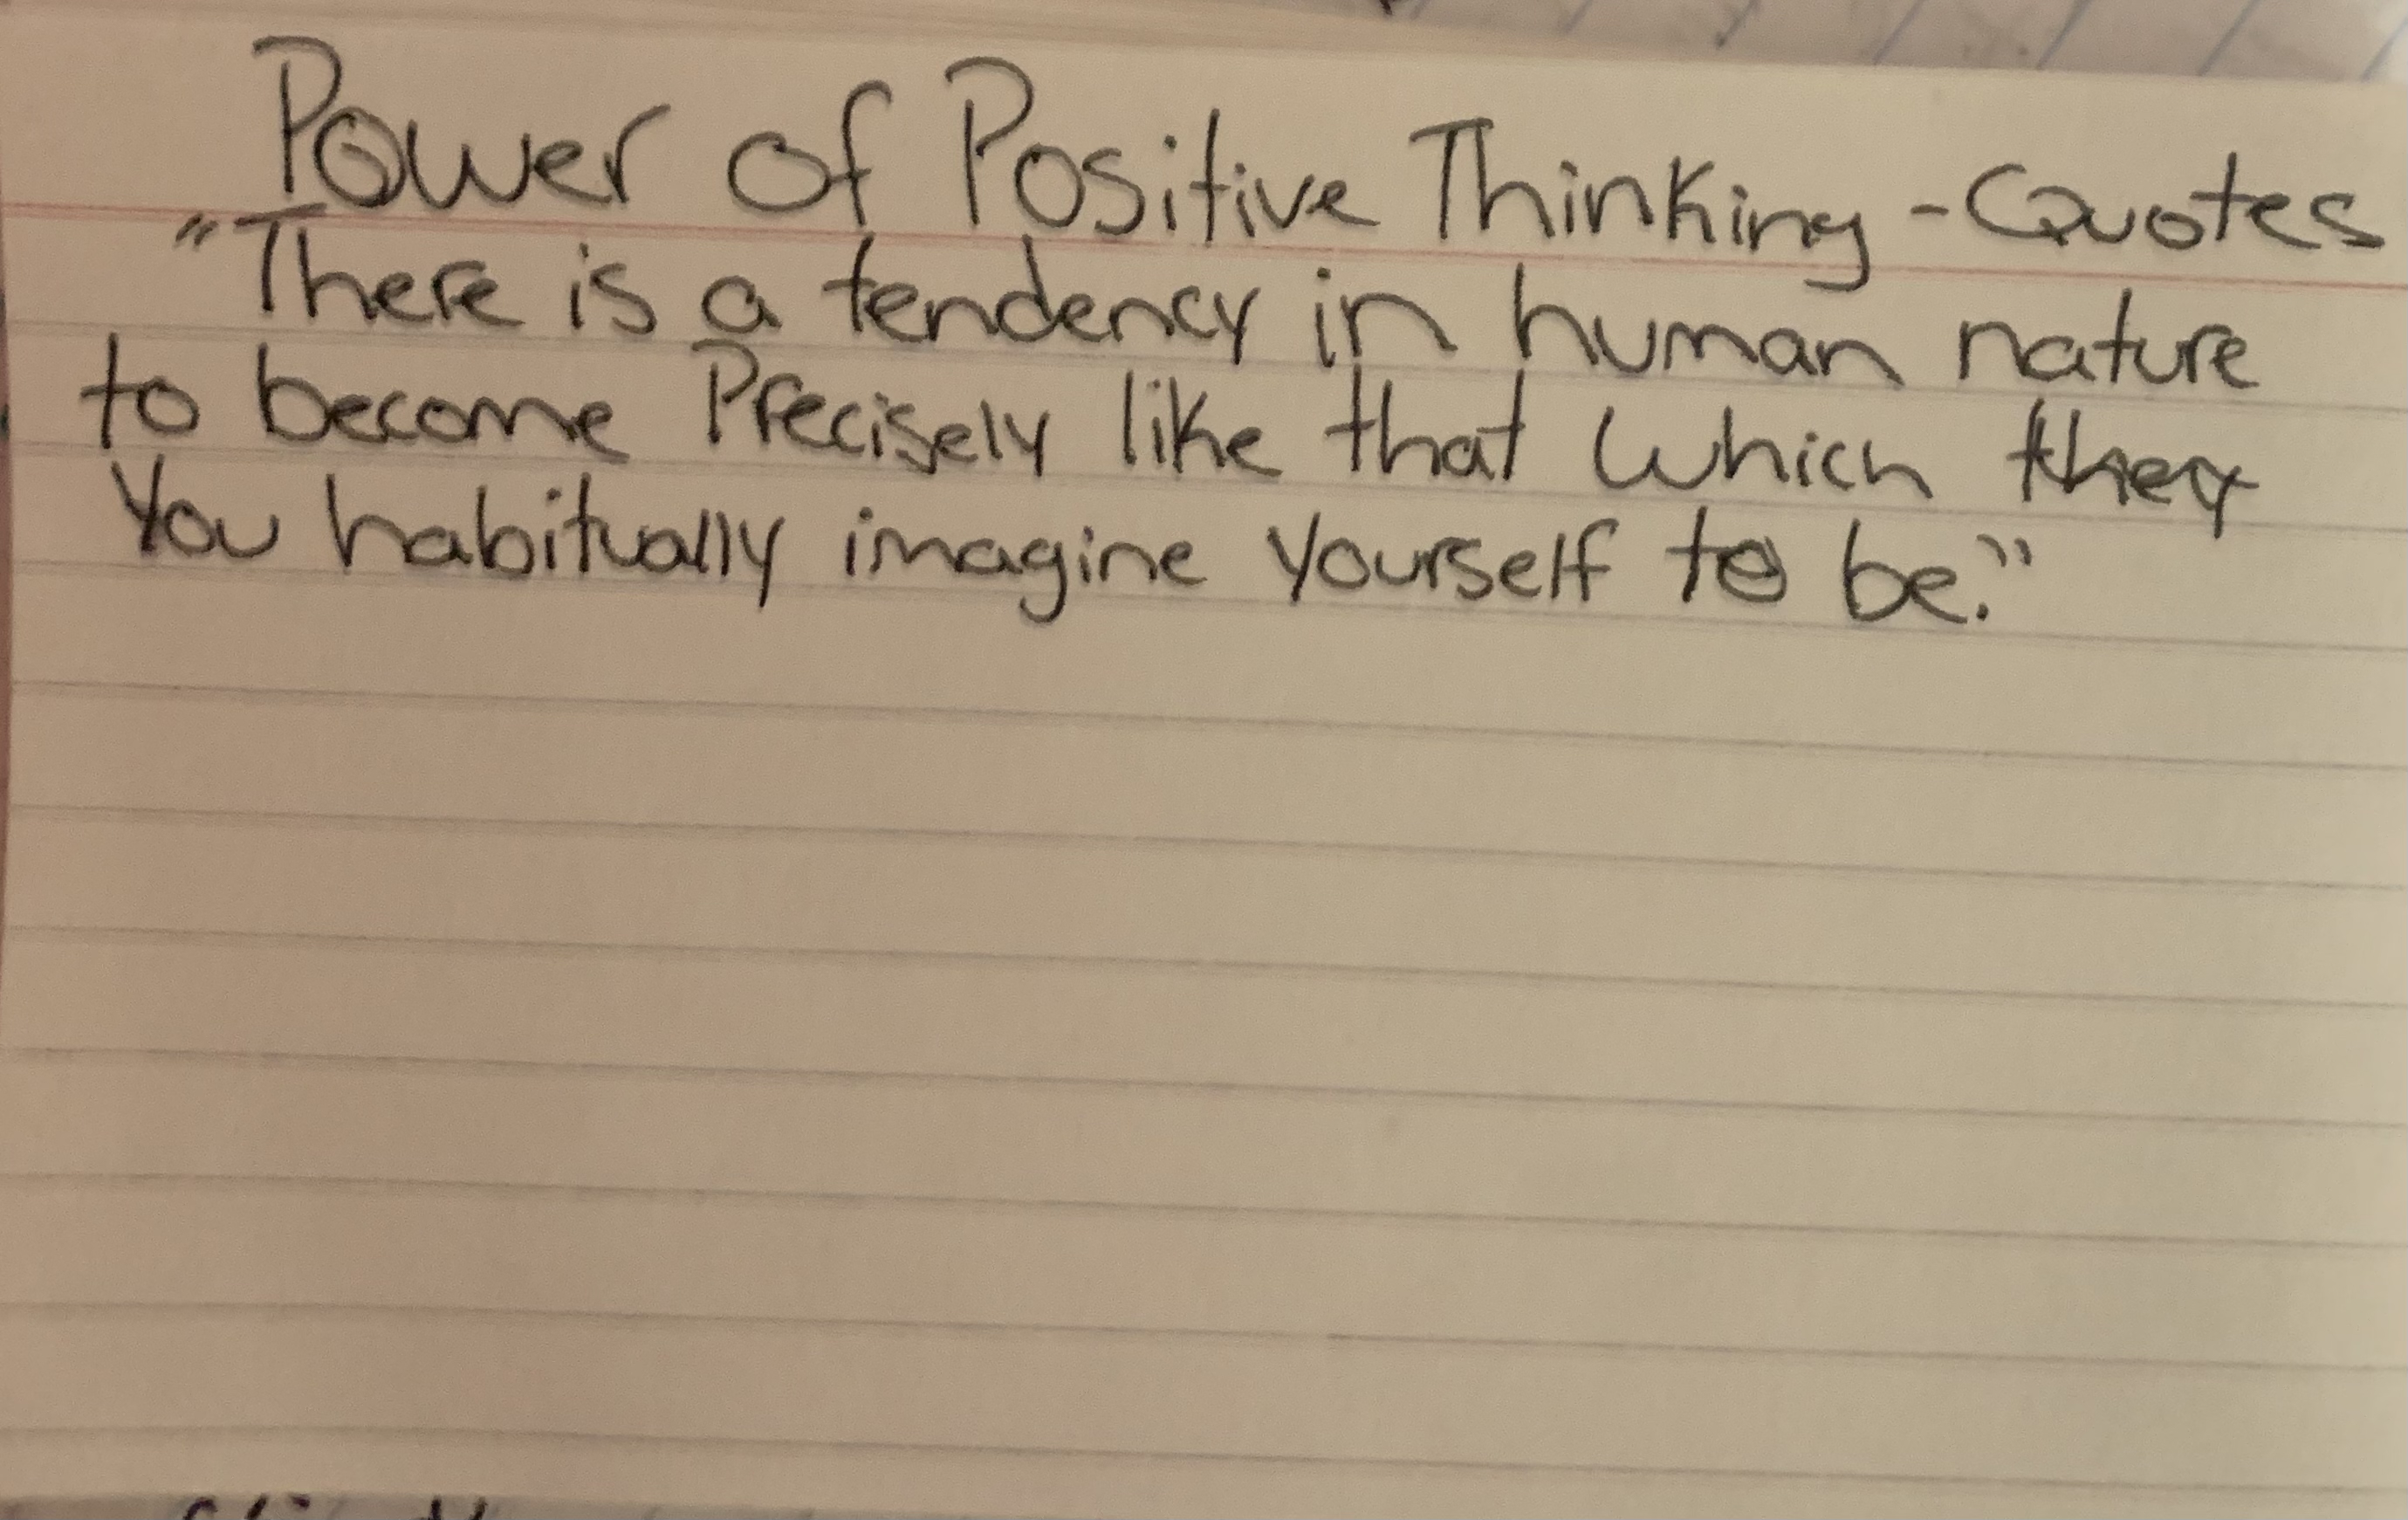 Power of Positive Thinking - Quotes
"There is a tendency in human nature
to become Precisely like that which they
You habitually imagine yourself to be."